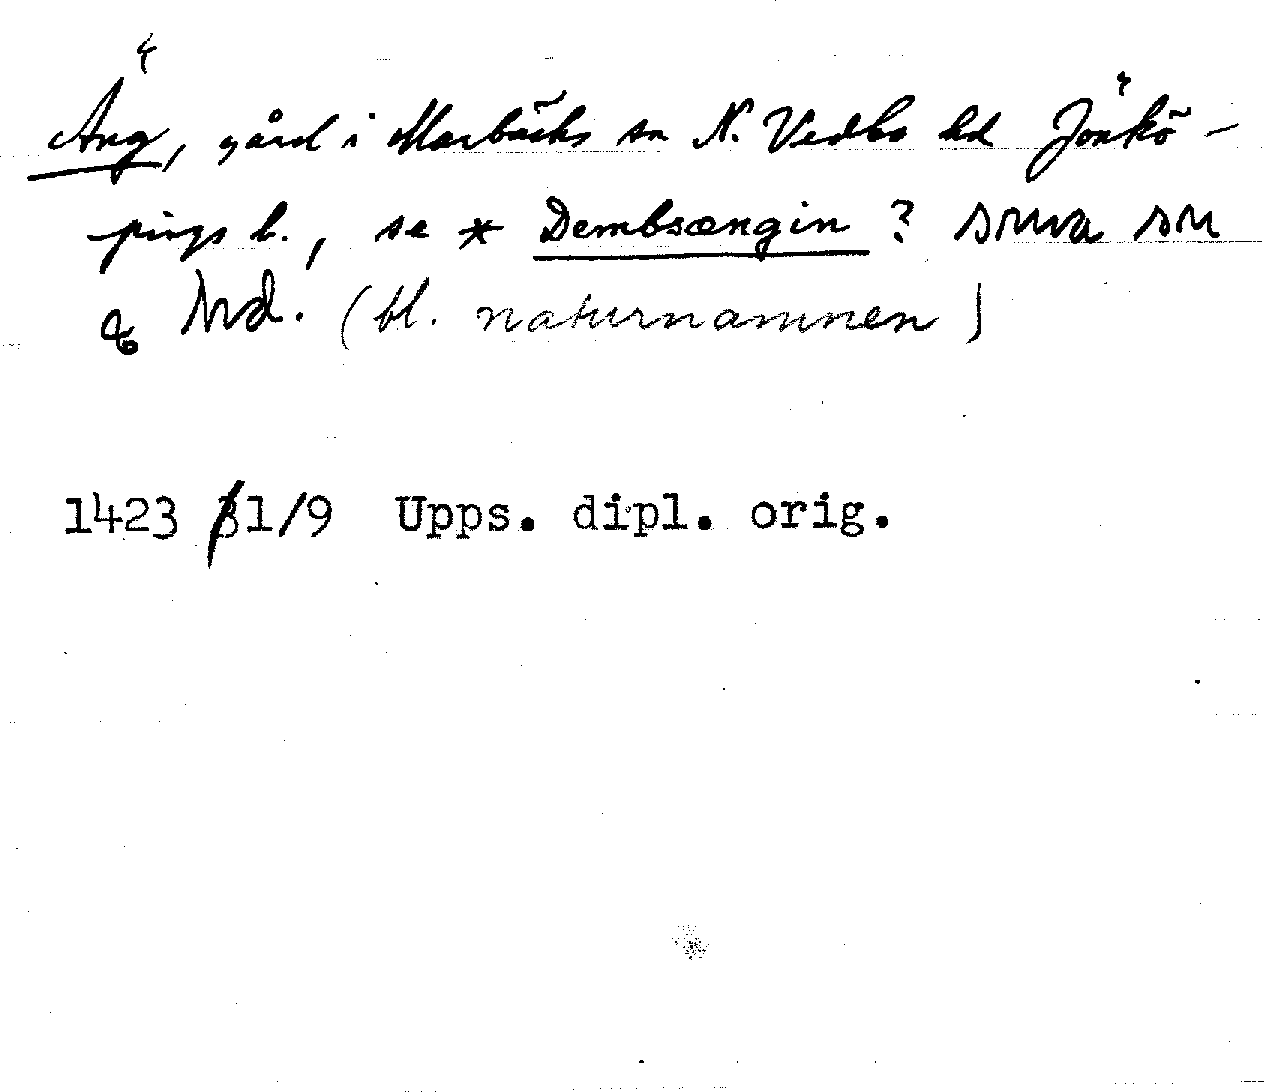 Äng, gård i Marbäcks sn N. Vedbo hd Jönkö-
pings l., se * Dembsængin ? smva sn
& hd. (bl. naturnamnen)
1423 31/9 Upps. dipl. orig.